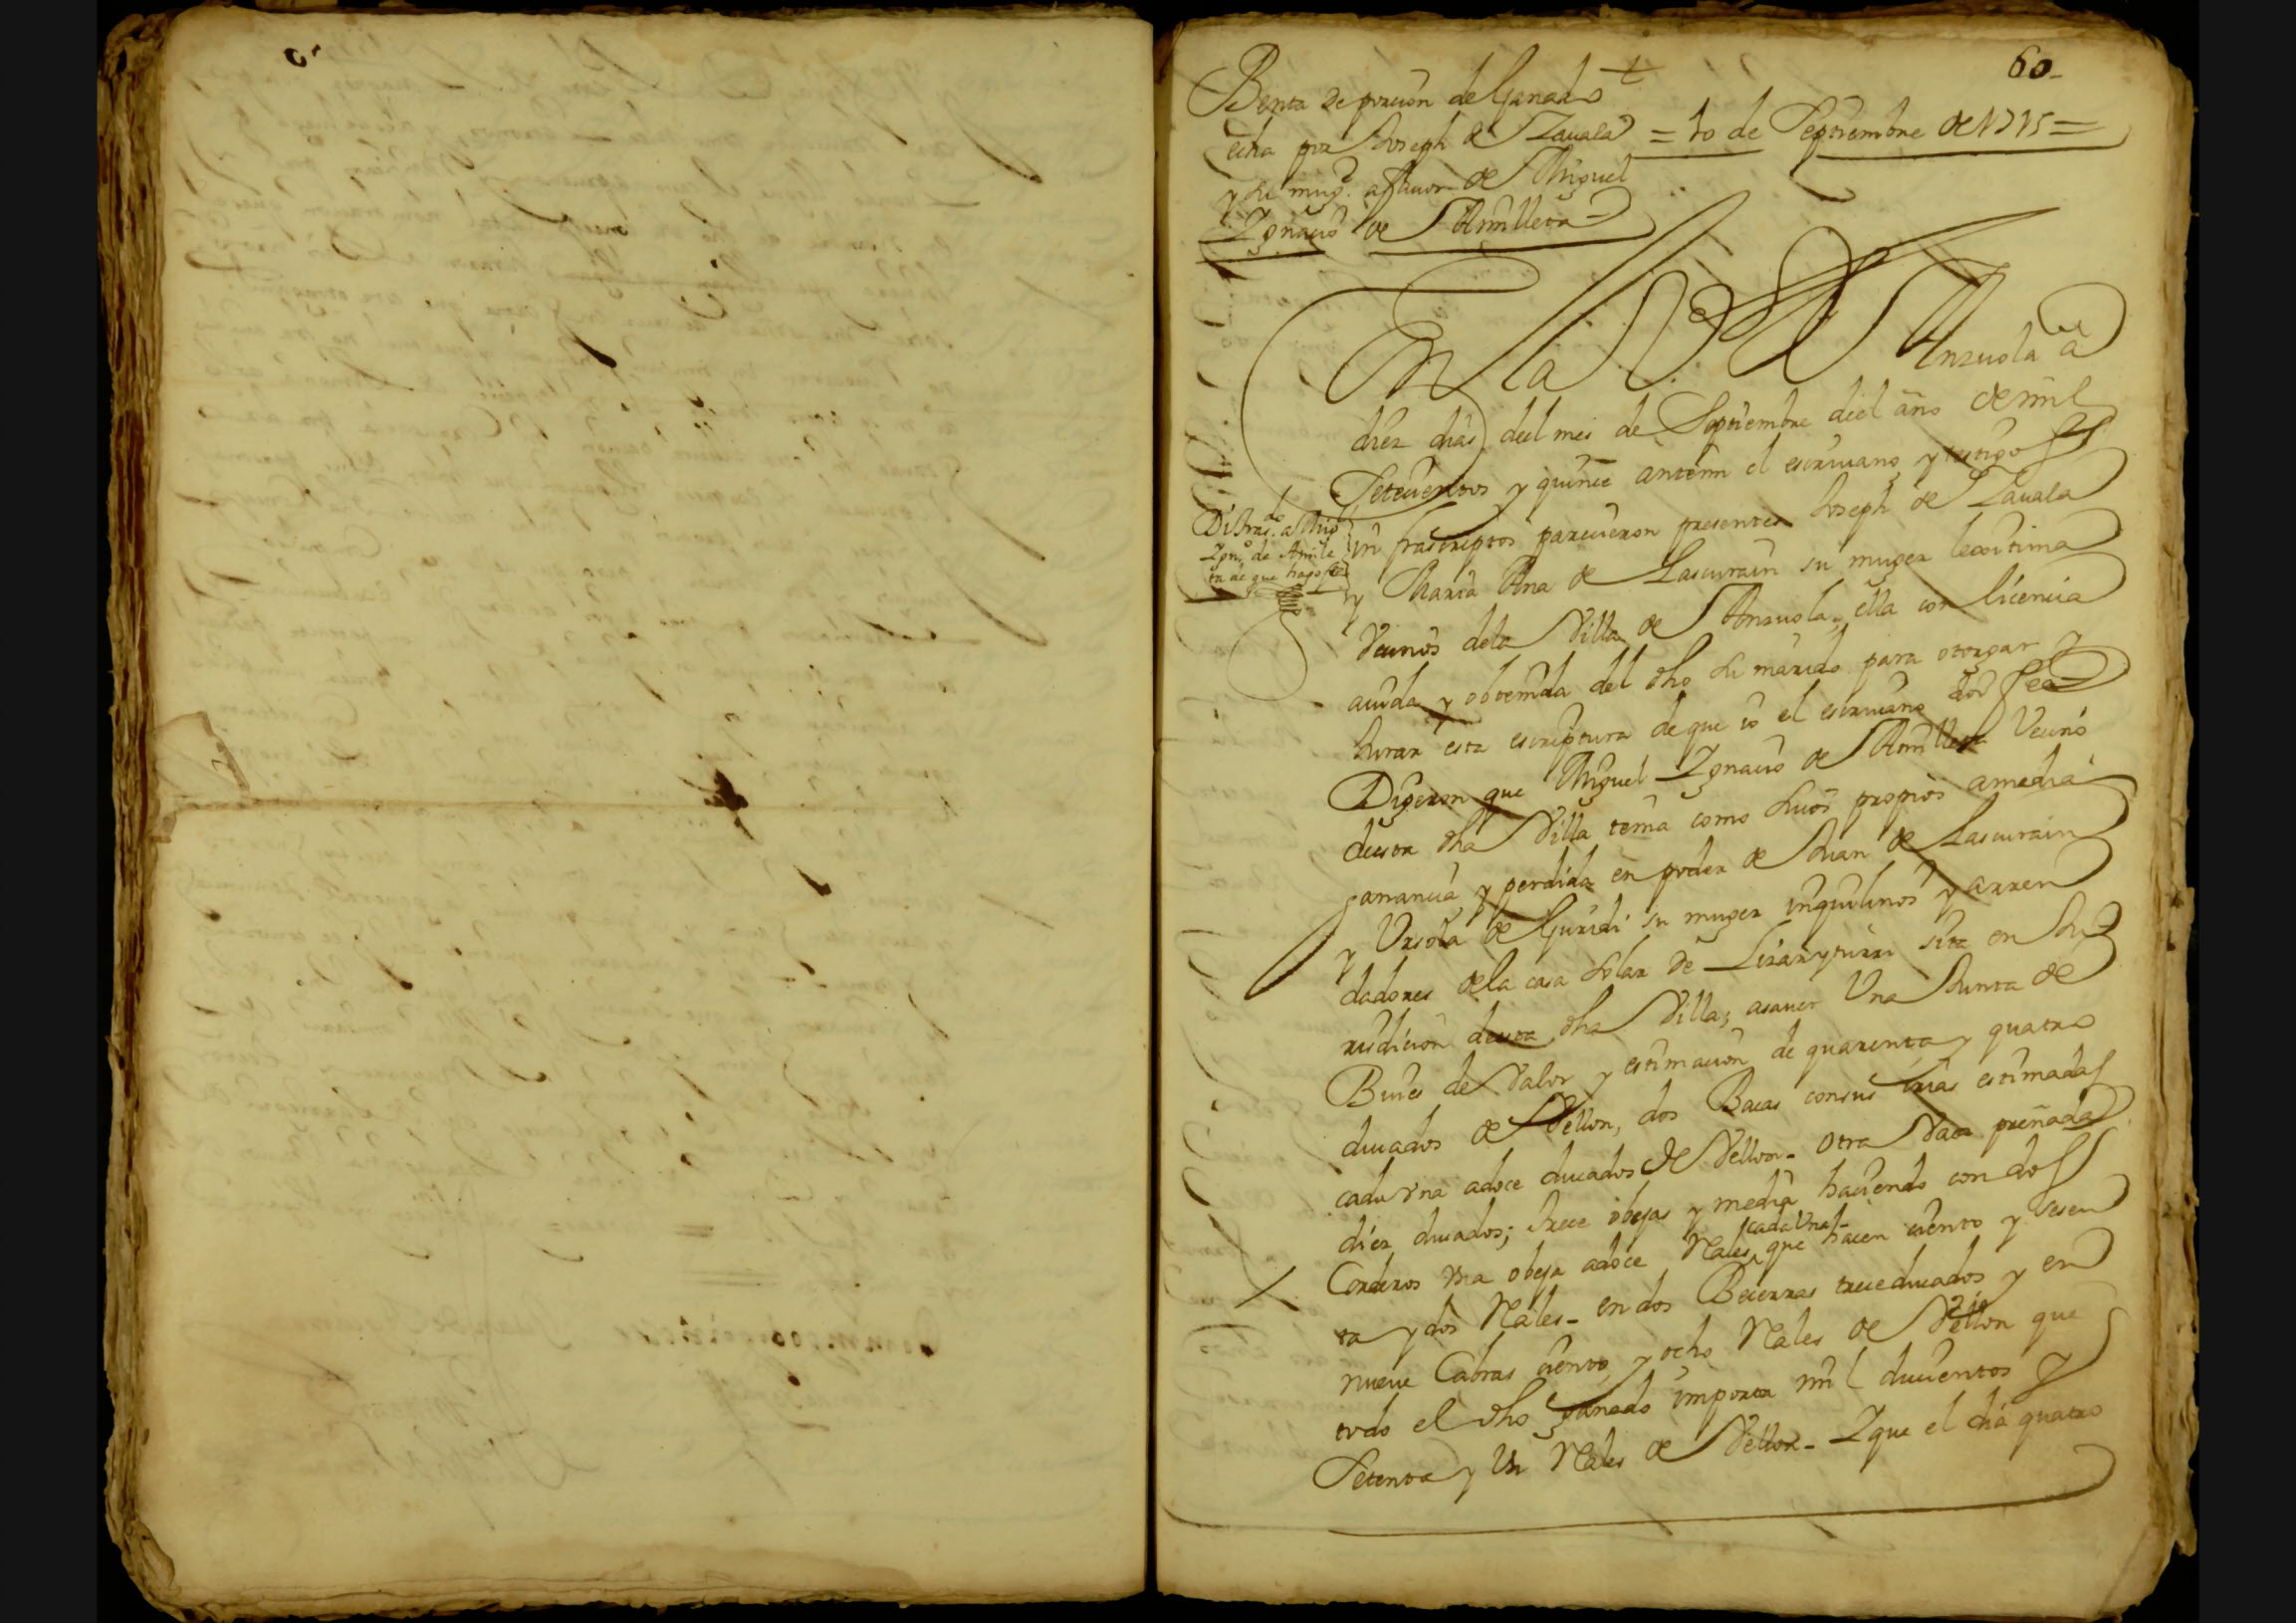 60
Benta de porcion de Ganado
echa por Joseph de Zauala = 10 de Septiembre de 1715 =
y su mugr. a fauor de Miguel
Ygnacio de Amilleta
En la Villa de Anzuola a
diez dias del mes de Septiembre del año de mil
Setecientos y quince antemi el escriuano y testigos
in frascriptos parecieron presentes Joseph de Zauala
y Maria Ana de Lascurain su muger lexitima
Vecinos dela Villa de Anzuola, ella con licencia
auida y obtenida del dho su marido para otorgar y
Jurar esta escriptura de que io el escriuano doi fee
Digeron que Miguel Ygnacio de Amilleta Vecino
desta dha Villa tenia como suios propios amedia
ganancia y perdida en poder de Juan de Lascurain
y Ursola de Guridi su muger inquilinos y arren
dadores dela casa solar de Lizaryturri sita en Ju
risdicion desta dha Villa; asauer Una Junta de
Buies de Valor y estimacion de quarenta y quatro
ducados de Vellon, dos Bacas consus crias estimadas
cada vna adoce ducados de Vellon - otra Vaca preñada
diez ducados; trece obejas y media haciendo con dos
Corderos vna obeja adoce Rales cada Una que hacen ciento y sesen
ta y dos Rales - en dos Becerras trece ducados y en
nueve Cabras ciento y ocho Rales de Vellon que
todo el dho ganado importa mil ducientos y
Setenta y Un Rales de Vellon - Y que el dia quatro
Di tras.do a Migl
Ygn.o de Amille
ta de que hago fee